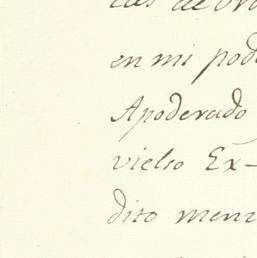 en mi pod
Apoderado
vielso Ex-
dito menz